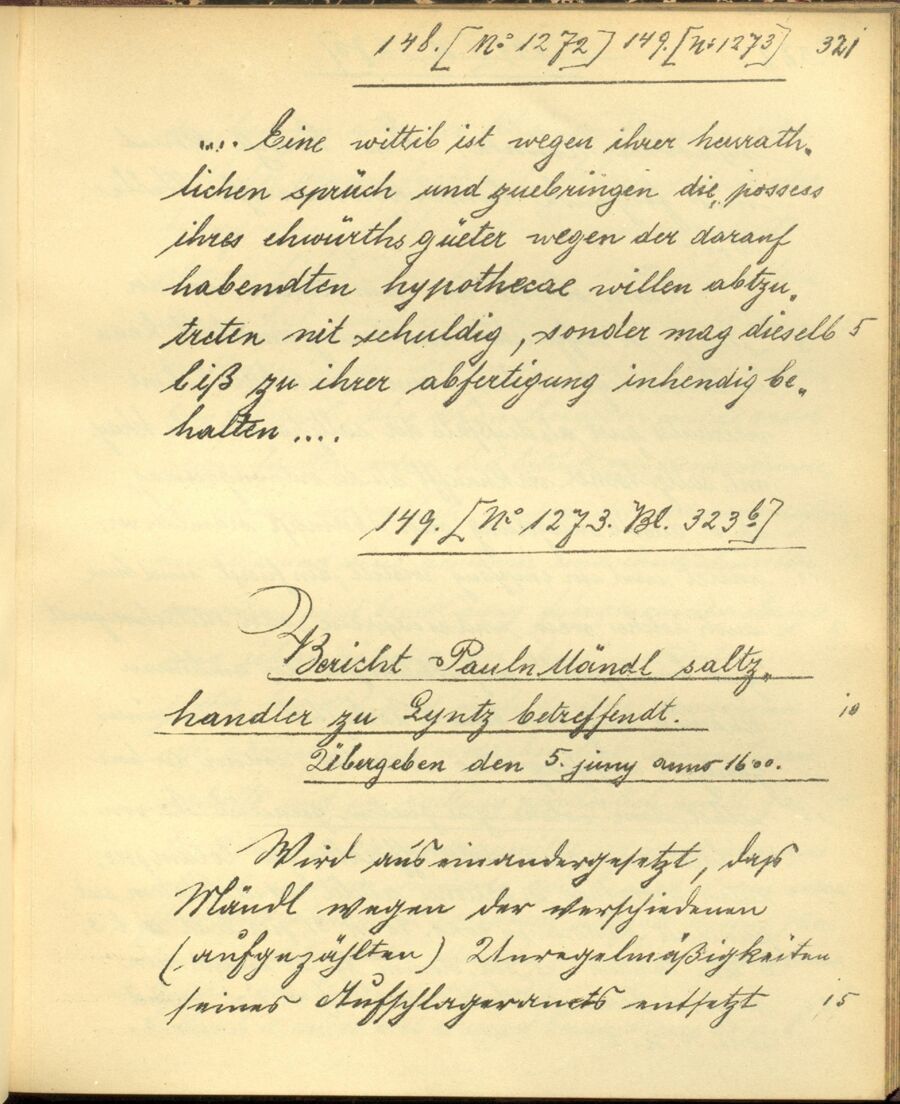 148. [No 1272] 149. [No 1273] 321
.... Eine wittib ist wegen ihrer heurath„
lichen sprüch und zuebringen die possess
ihres ehwürths güeter wegen der darauf
habendten hypothecae willen abtzu„
treten nit schuldig, sonder mag dieselb 5
biß zu ihrer abfertigung inhendig be„
halten ....
149. [No 1273. Bl. 323b]
Bericht Pauln Mändl saltz„
handler zu Lyntz betreffendt. 10
Übergeben den 5. juny anno 1600.
Wird auseinandergesetzt, daß
Mändl wegen der verschiedenen
(aufgezählten) Unregelmäßigkeiten
seines Aufschlageramts entsetzt 15